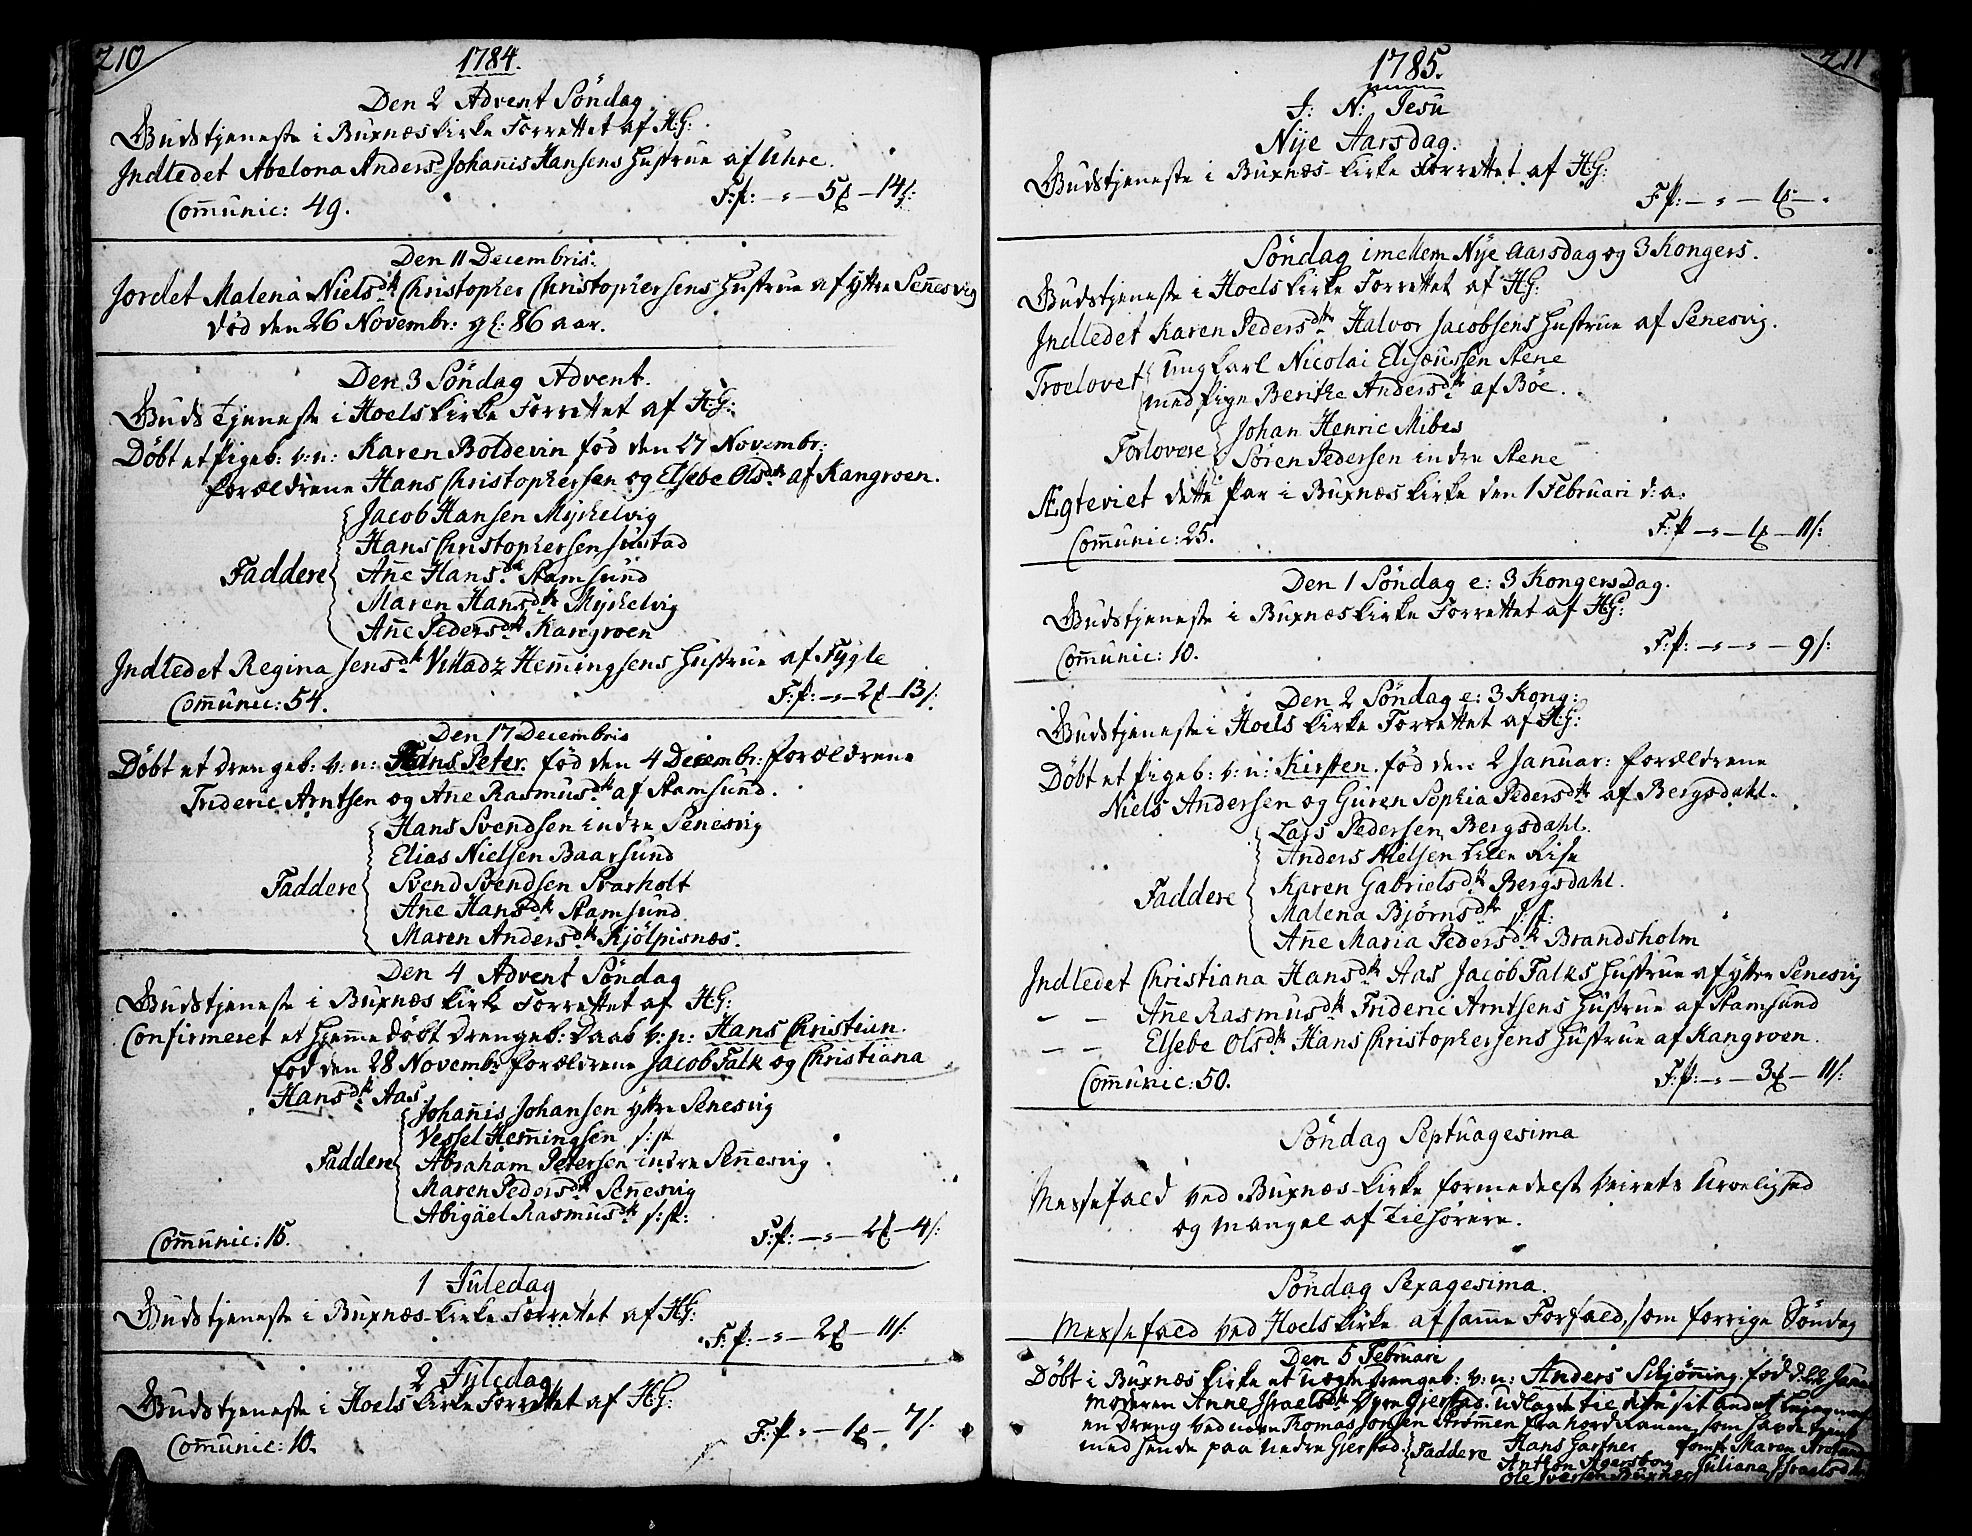 210
1784.
Den 2 Advent Söndag
Gudstjeneste i Buxnæs kirke Forrettet af H:G:
Indledet Abelona Andersd: Johañis Hansens Hustrue af Uhre.
F:p: – „ – 5 – 14 s:
Com̃unic: 49.
Den 11 Decembris.
Jordet Malena Nielsdtr Christopher Christophersens Hustrue af yttre Señesvig
död den 26 Novembr: gl: 86 aar.
Den 3 Söndag Advent.
Guds Tjeneste i Hoels kirke Forrettet af H:G:
Döbt et Pigeb: v: n: Karen Boldevin föd den 27 Novembr:
forældrene Hans Christophersen og Elsebe Olsdtr af Kangroen.
Jacob Hansen Myrhelvig
Hans Christophersen Justad
Faddere
Añe Hansdtr Stamsund
Maren Hansdtr Myrhelvig
Añe Pedersdtr Kangroen
Indledet Regina Jensdtr Villadz Hem̃ingsens Hustrue af Fygle
Com̃unic: 54.
F:p: – „ – 2 – 13 s:
Den 17 Decembris
Döbt et drengeb: v: n: Hans Peter. föd den 4 Decembr: forældrene
Frideric Arntsen og Añe Rasmusdtr af Stamsund.
Hans Svendsen indre Senesvig
Elias Nielsen Baarsund
Faddere
Svend Svendsen Svarholt
Añe Hansdtr Stamsund
Maren Andersdtr Kjölpisnæs.
Den 4 Advent Söndag
Gudstjeneste i Buxnæs kirke Forrettet af H:G:
Confirmeret et hjem̃edöbt drengeb: Daab v: n: Hans Christian.
föd den 28 Novembr forældrene Jacob Falk og Christiana
Hansdtr Aas
Johañis Johansen yttre Senesvig
Vessel Hem̃ingsen s: st
Faddere
Abraham Petersen indre Señesvig
Maren Pedersdtr Señesvig
Abigäel Rasmusdtr s: st:
Com̃unic: 15.
F:p: – „ – 2 – 4 s:
1 Juledag
Gudstjeneste i Buxnæs-kirke Forrettet af H:G:
F:p: – „ – 2 – 11 s:
2 Juledag
Gudstjeneste i Hoels kirke Forrettet af H:G:
Com̃unic: 10.
F:p „ – 1 – 7 s:
211
1785.
I: N: Jesu
Nÿe Aarsdag.
Gudstjeneste i Buxnæs-kirke Forrettet af H:G:
F:p: – „ – 1 – „
Söndag imellem Nÿe Aarsdag og 3 Kongers.
Gudstjeneste i Hoels kirke Forrettet af H:G:
Indledet Karen Pedersdtr Halvor Jacobsens Hustrue af Senesvig.
Troelovet
Ungkarl Nicolai Elisæussen Stene
med Pige Benthe Andersdtr af Böe.
Forlovere
Johan Henric Mibes
Sören Pedersen indre Stene
Ægteviet dette Par i Buxnæs kirke den 1 Februari d: a:
Com̃unic: 25.
F:p – „ – 1 – 11 s:
Den 1 Söndag e: 3 Kongers Dag.
Gudstjeneste i Buxnæs kirke Forrettet af H:G:
Com̃unic: 10.
F:p: – „ – „ – 9 s:
Den 2 Söndag e: 3 Kong:
Gudstjeneste i Hoels kirke Forrettet af H:G:
Döbt et Pigeb: v: n: Kirsten. föd den 2 Januar: forældrene
Niels Andersen og Guren Sophia Pedersdtr af Bergsdahl.
Lars Pedersen Bergsdahl.
Anders Nielsen Lille Rise
Faddere
Karen Gabrielsdtr Bergsdahl.
Malena Björnsdtr s: st:
Añe Maria Pedersdtr Brandsholm
Indledet Christiana Hansdtr Aas Jacob Falks Hustrue af yttre Senesvig
– – Añe Rasmusdtr Frideric Arntsens Hustrue af Stamsund
– – Elsebe Olsdtr Hans Christophersens Hustrue af Kangroen.
Com̃unic: 50.
F:p: – „ – 3 – 11 s:
Söndag Septuagesima
Messefald ved Buxnæs-kirke formedelst Veirets Uroelighed
og Mangel af Tilhörere.
Söndag Sexagesima.
Messefald ved Hoels kirke af sam̃e Forfald, som forrige Söndag
Den 5 Februari
Döbt i Buxnæs kirke et uægte drengeb: v: n: Anders Schjöñing. föd d: 22 Janu
moderen Anne Israelsdtr övre Gjerstad. udlagde til sit andet
en dreng ved navn Thomas Jonsen Strömmen fra Nordranen, som havde tjent
med hende paa nedre Gjerstad.
Faddere
Hans Gartner
Anthon Agersborg
Ole Iversen Buxnæs
Jomfr Maren
Juliana Israelsdtr